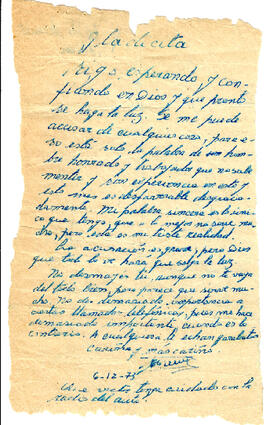 Gladicita
Sigo, esperando y con-
fiando en Dios y que pronto
se haga la luz. Se me puede
acusar de cualquier cosa, pero
está solo la palabra de un hom
bre honrado y trabajador que no sabe
mentir y sin experiencia en esto y
esto mas es desfavorable desgracia
damente. Mi palabra sincera es lo uni
co que tengo, que a lo mejor no sirve mu
cho, pero esta es mi triste realidad.
La acusación es grave, pero Dios
que todo lo ve hará que salga la luz.
No desmayes tu, aunque no te vaya
del todo bien, pero parece que será mu
cho. No des demasiada importancia a
ciertas llamadas telefónicas, pues me hace
demasiado importante, cuando es lo
contrario. A cualquiera le echan garabatos
Cariño y mas cariño
6-12-75
ten cuidado con la
radio del auto.